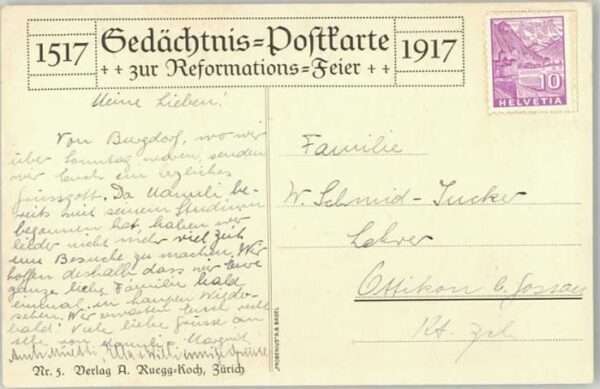 1517 Gedächtnis=Postkarte 1917
++ zur Reformations=Feier ++
10
HELVETIA
Meine Lieben!
Von Burgdorf, wo wir
über Sonntag waren, senden
wir Euch ein
Da be-
reits mit seinem Studium
begonnen hat, haben wir
leider nicht mehr viel Zeit
um Besuche zu machen. Wir
hoffen deshalb dass wir Eure
ganze liebe Familie bald
einmal in
sehen. Wir erwarten Euch recht
bald! Viele liebe Grüsse an
alle von
Familie
W. Schmid-Tucker
Lehrer
Ottikon b. Gossau
Kt. Zch
Nr. 5. Verlag A. Ruegg-Koch, Zürich